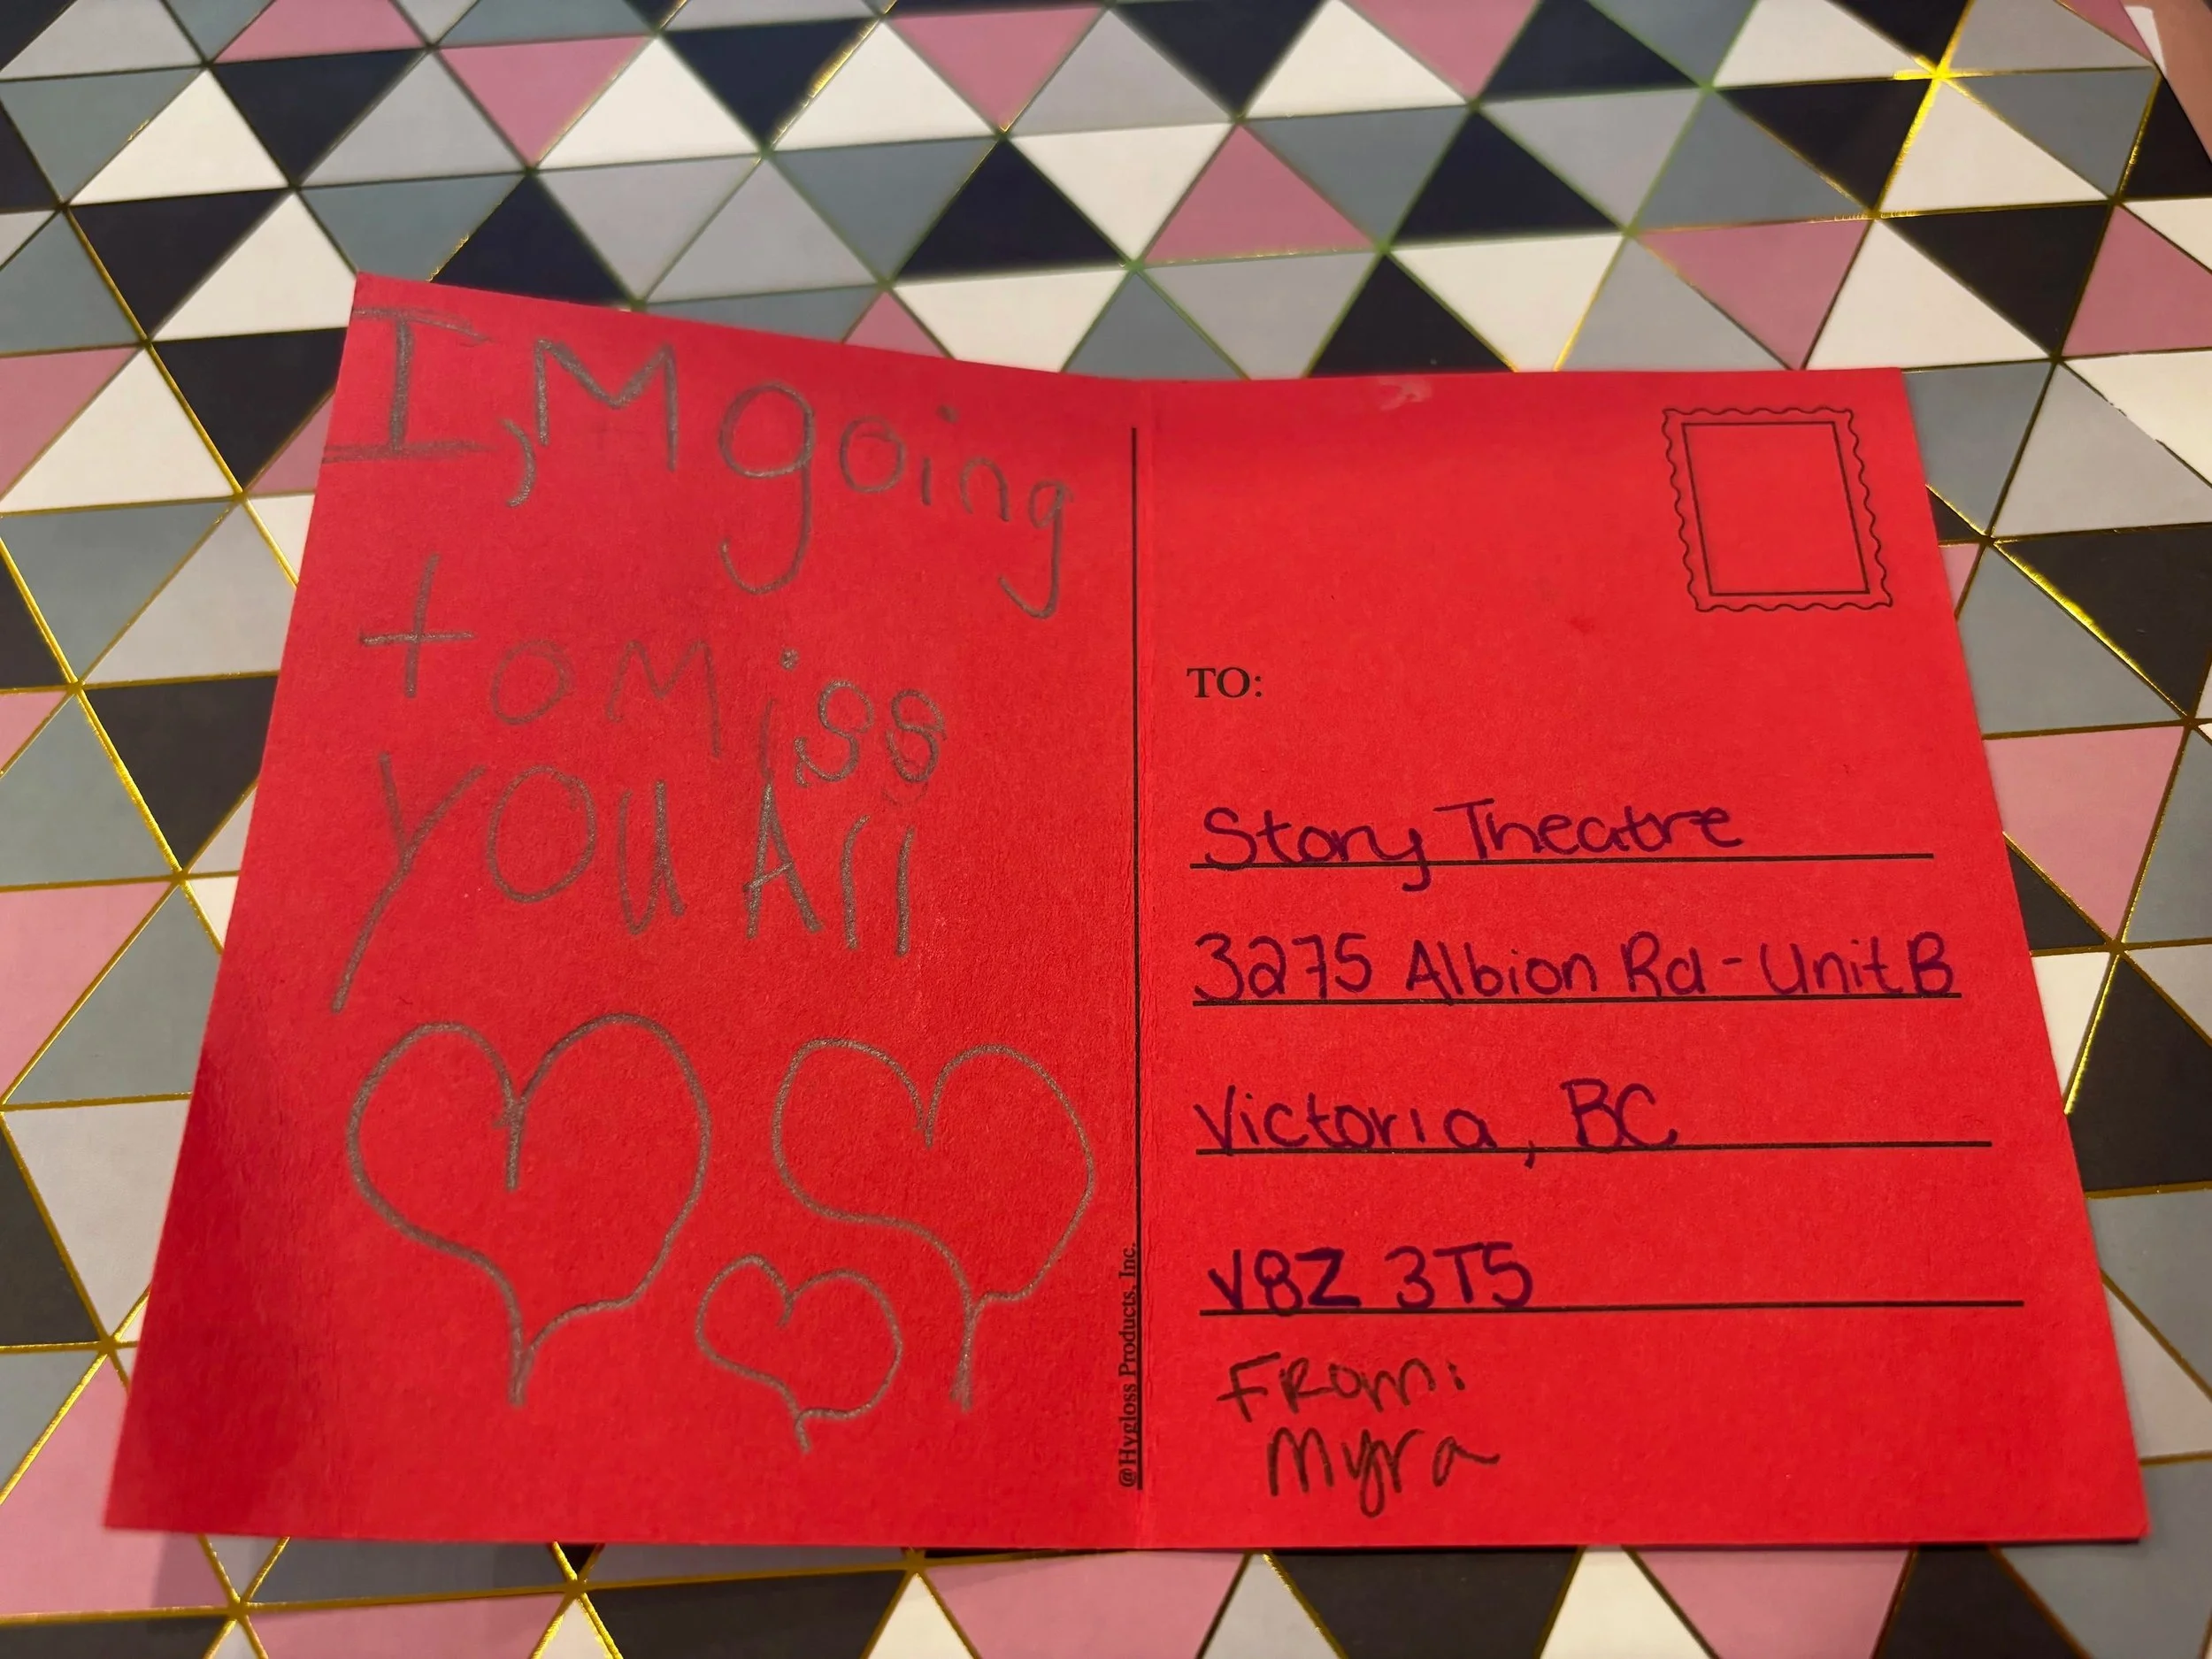 I,M going
to Miss
YOU All
@Hygloss Products, Inc.
TO:
Story Theatre
3275 Albion Rd - Unit B
Victoria, BC
V8Z 3T5
From:
Myra